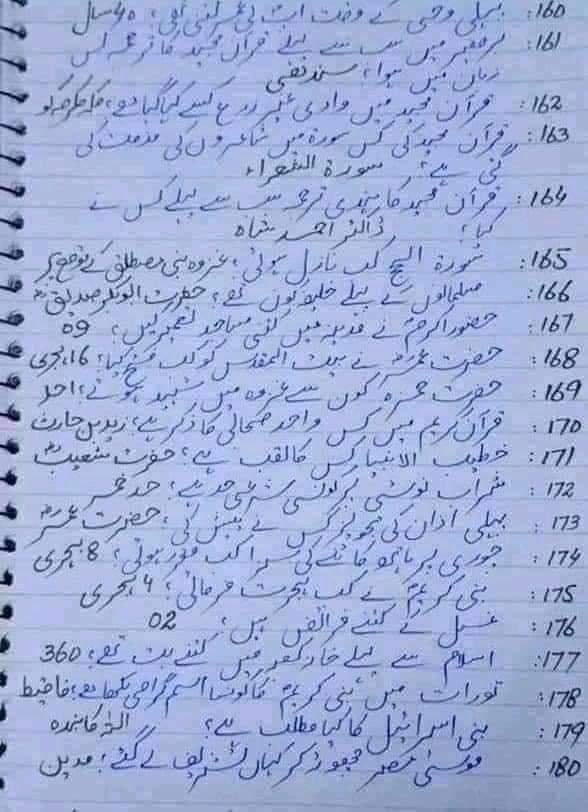 160: پہلی وحی کے وقت آپ کی عمر کتنی تھی؛ 40 سال
161: برصغیر میں سب سے پہلے قرآن مجید کا ترجمہ کس
زبان میں ہوا؛ سندھی
162: قرآن مجید میں وادی غیر ذی زرع کسے کہا گیا ہے؛ مکہ مکرمہ کو
163: قرآن مجید کی کس سورۃ میں شاعروں کی مذمت کی
گئی ہے؛ سورۃ الشعراء
164: قرآن مجید کا ہندی ترجمہ سب سے پہلے کس نے
کیا؛ ڈاکٹر احمد شاہ
165: سورۃ الحج کب نازل ہوئی؛ غزوہ بنی مصطلق کے موقع پر
166: مسلمانوں کے پہلے خلیفہ کون تھے؛ حضرت ابوبکر صدیقؓ
167: حضور اکرمؐ نے مدینہ میں کتنی مساجد تعمیر کیں؛ 09
168: حضرت عمرؓ نے بیت المقدس کو کب فتح کیا؛ 16 ہجری
169: حضرت حمزہؓ کون سے غزوہ میں شہید ہوئے؛ احد
170: قرآن کریم میں کس واحد صحابی کا ذکر ہے؛ زید بن حارث
171: خطیب الانبیاء کس کا لقب ہے؛ حضرت شعیبؑ
172: شراب نوشی پر کونسی شرعی حد ہے؛ حد خمر
173: پہلی اذان کی تجویز کس نے پیش کی؛ حضرت عمرؓ
174: چوری پر ہاتھ کاٹنے کی سزا کب مقرر ہوئی؛ 8 ہجری
175: نبی کریمؐ نے کب ہجرت فرمائی؛ ہجری
176: غسل کے کتنے فرائض ہیں؛ 02
177: اسلام سے پہلے خانہ کعبہ میں کتنے بت تھے؛ 360
178: تورات میں نبی کریمؐ کا کونسا اسم گرامی لکھا ہے؛
179: بنی اسرائیل کا کیا مطلب ہے؛ اللہ کا بندہ
180: موسیٰؑ مصر چھوڑ کر کہاں تشریف لے گئے؛ مدین